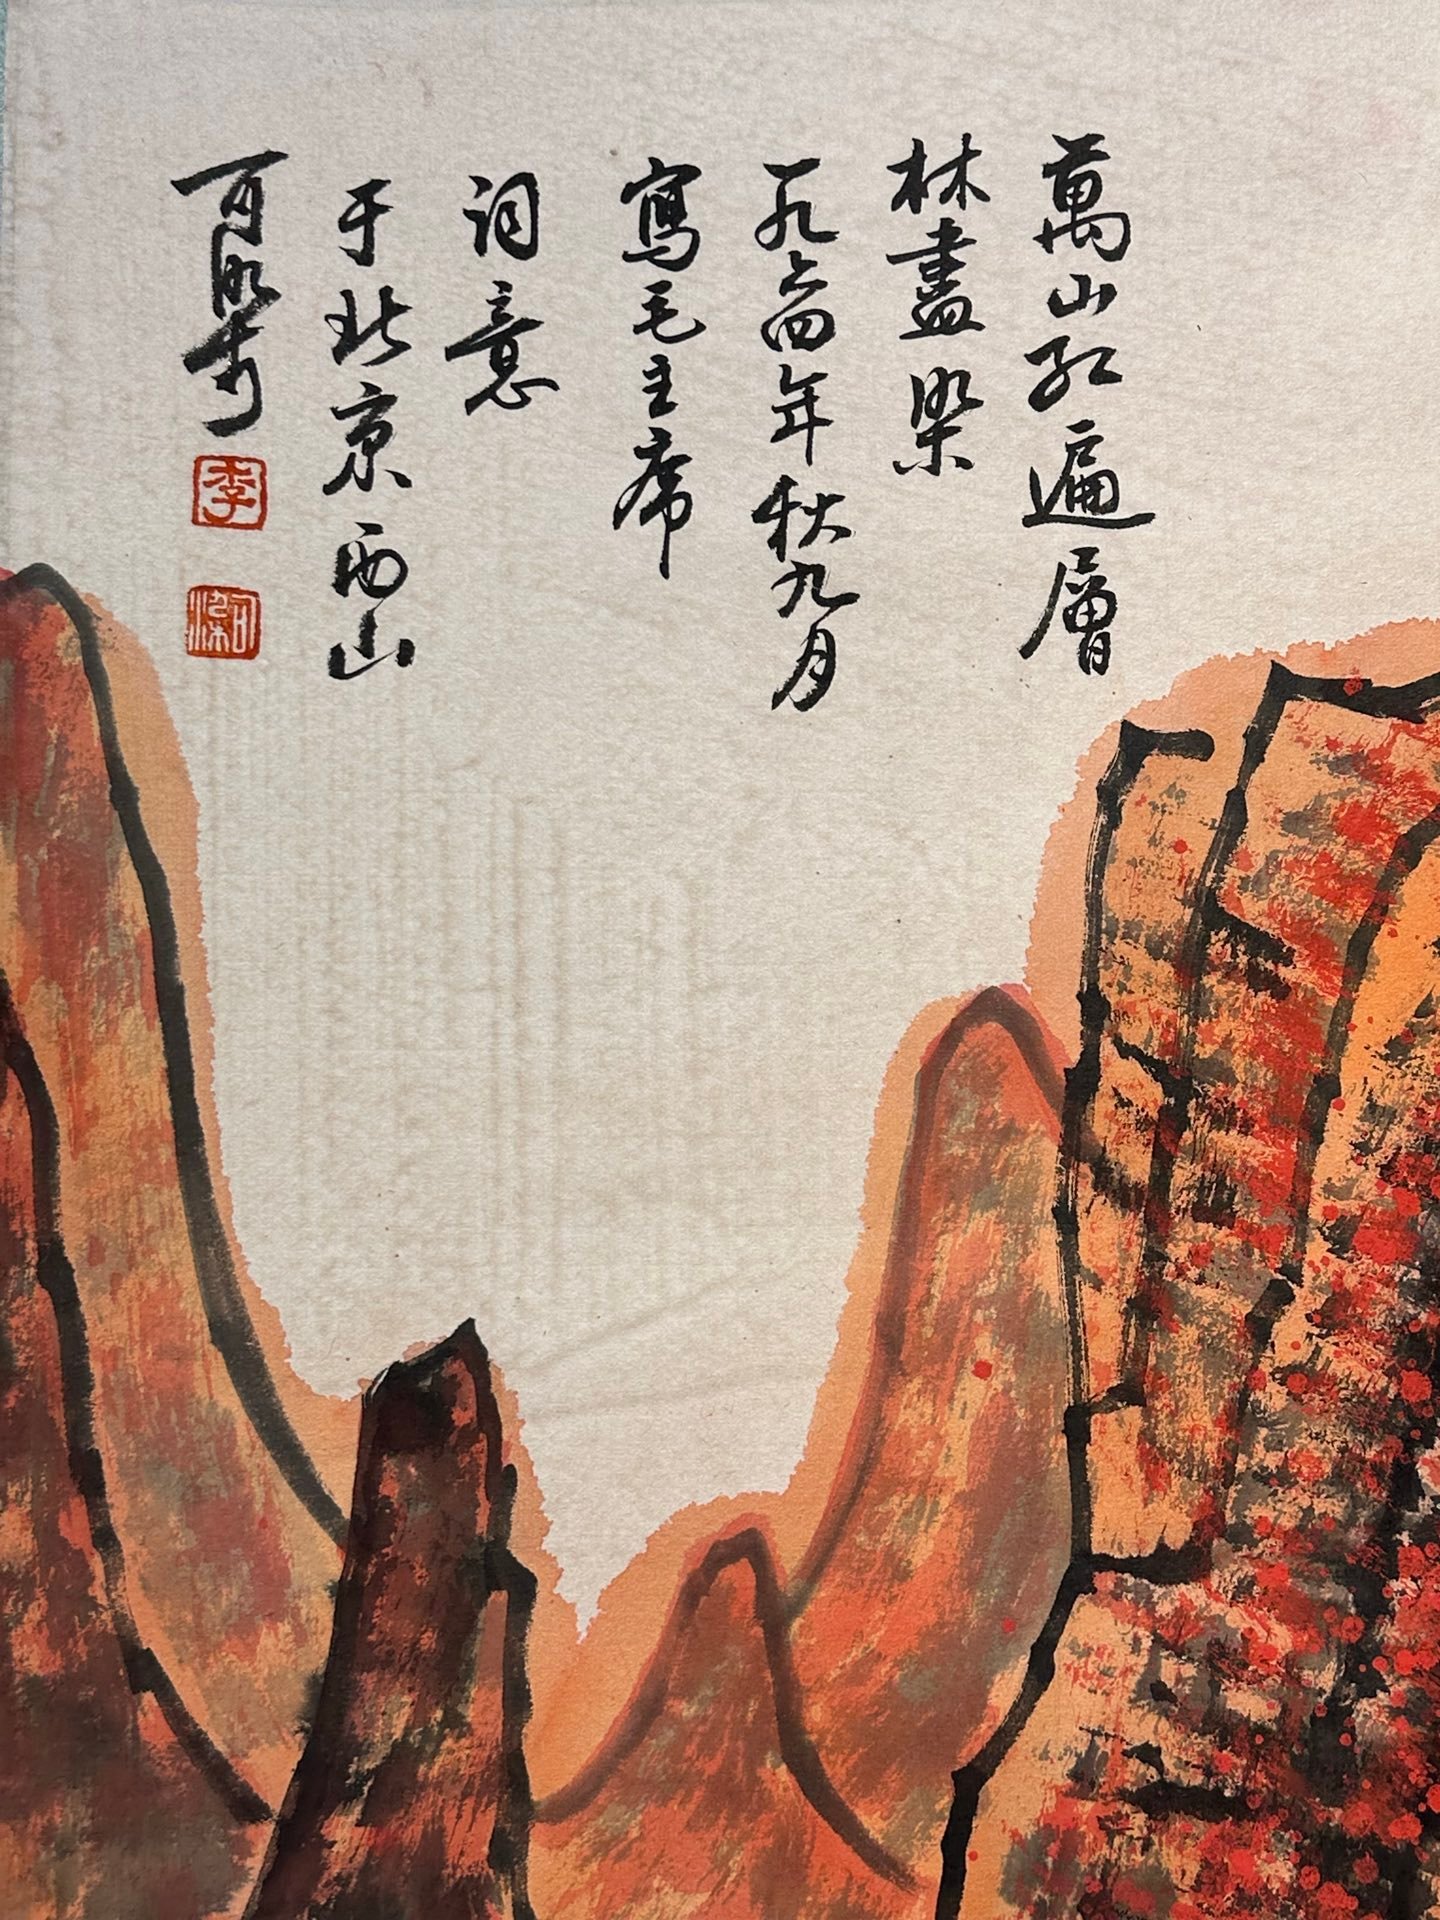 萬山紅遍層
林盡染
一九六四年秋九月
寫毛主席
詞意
于北京西山
可染
李
可染